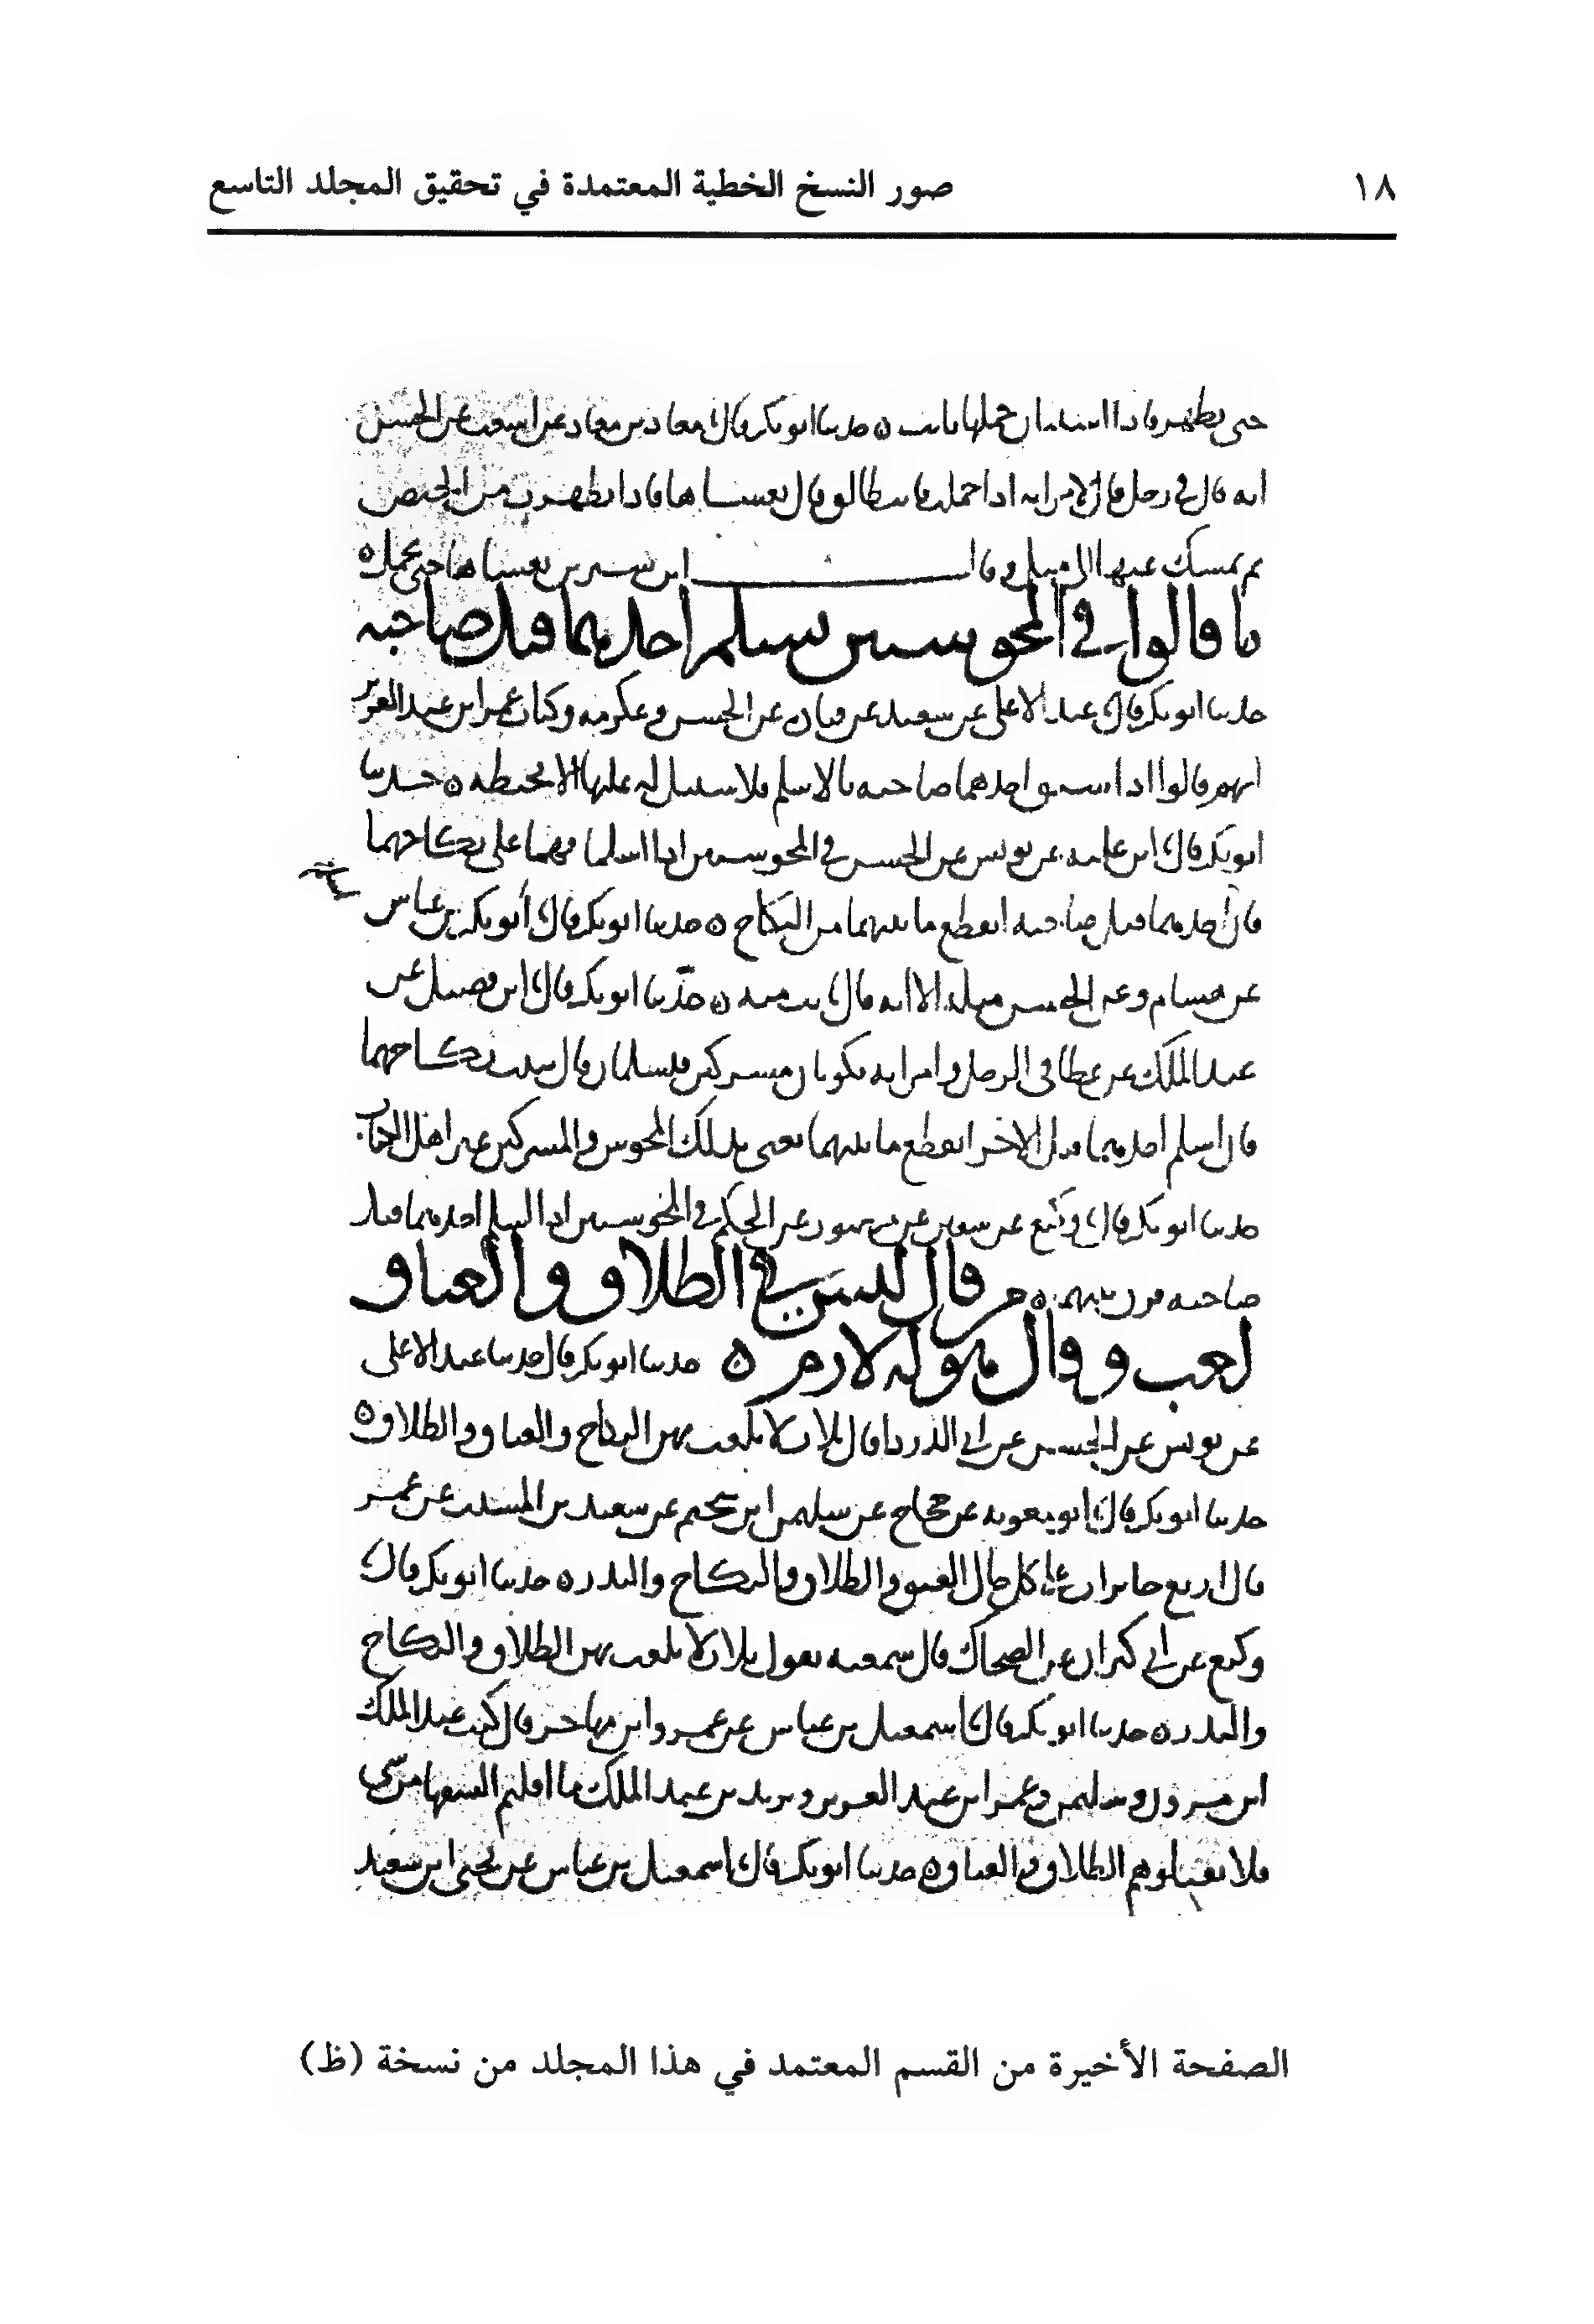 ١٨
صور النسخ الخطية المعتمدة في تحقيق المجلد التاسع
حتى تطهر فاذا استبان حملها بانت ٥ حدثنا ابو بكر قال معاذ بن معاذ عن اشعث عن الحسن
انه قال في رجل قال لامراته اذا حملت فانت طالق قال يغشاها فاذا تطهرت من الحيض
ثم تمسك عنها الى مثل وقال ابن سيرين يغشاها حتى تحمل ٥
ما قالوا في المجوسيين يسلم احدهما قبل صاحبه
حدثنا ابو بكر قال عبد الاعلى عن سعيد عن قتادة عن الحسن وعكرمه وكتاب عمر ابن عبد العزيز
انهم قالوا اذا سبق احدهما صاحبه بالاسلم فلا سبيل له عليها الا بخطبه ٥ حدثنا
ابو بكر قال ابن عليه عن يونس عن الحسن في المجوسيين اذا اسلما فهما على نكاحهما
فان احدهما قبل صاحبه انقطع ما بينهما من النكاح ٥ حدثنا ابو بكر قال أبو بكر بن عياش
عن هشام وعن الحسن مثله الا انه قال بانت منه ٥ حدثنا ابو بكر قال ابن فضيل عن
عبد الملك عن عطا في الرجل وامراته يكونان مشركين فيسلمان قال يثبت نكاحهما
فان اسلم احدهما قبل الاخر انقطع ما بينهما يعنى بذلك المجوس والمشركين غير اهل الكتاب
حدثنا ابو بكر قال وكيع عن سفين عن منصور عن الحكم في المجوسيين اذا اسلم احدهما قبل
صاحبه فرق بينهما ٥ من قال ليس في الطلاق والعتاق
لعب وقال هو له لازم ٥ حدثنا ابو بكر قال حدثنا عبد الاعلى
عن يونس عن الحسن عن ابي الدرداء قال ثلاث لا يلعب بهن النكاح والعتاق والطلاق ٥
حدثنا ابو بكر قال ابو معويه عن حجاج عن سليمن ابن سحيم عن سعيد بن المسيب عن عمر
قال اربع جايزات على كل حال العتق والطلاق والنكاح والنذر ٥ حدثنا ابو بكر قال
وكيع عن ابي كبران عن الضحاك قال سمعته يقول ثلاث لا يلعب بهن الطلاق والنكاح
والنذر ٥ حدثنا ابو بكر قال اسمعيل بن عياش عن عمرو ابن مهاجر قال كتب عبد الملك
ابن مرون وسليمن وعمر ابن عبد العزيز ويزيد بن عبد الملك ما اقلتم السفها من شى
فلا تقيلوهم الطلاق والعتاق ٥ حدثنا ابو بكر قال اسمعيل بن عياش عن يحيى ابن سعيد
الصفحة الأخيرة من القسم المعتمد في هذا المجلد من نسخة (ظ)